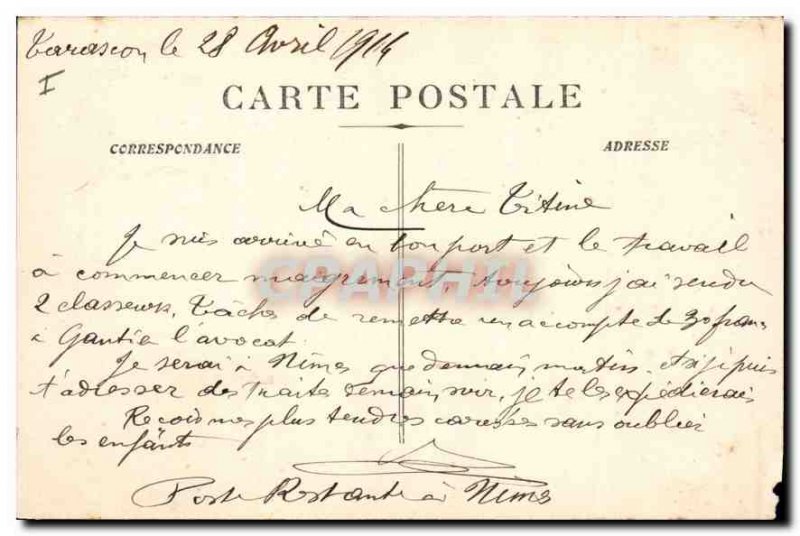 Tarascon le 28 Avril 1914
I
CARTE POSTALE
CORRESPONDANCE
ADRESSE
Ma chere Titine
Je suis arrivé en bon port et le travail
à commencer maigrement toujours j'ai vendu
2 classeurs. Tâches de remettre un accompte de 30 francs
à Gautie l'avocat.
Je serai à Nîmes que demain matin. et si je puis
t'adresser des traites demain soir, je te les expédierais
Recois mes plus tendres caresses sans oublier
les enfants
Poste Restante à Nîmes
CPAPHIL